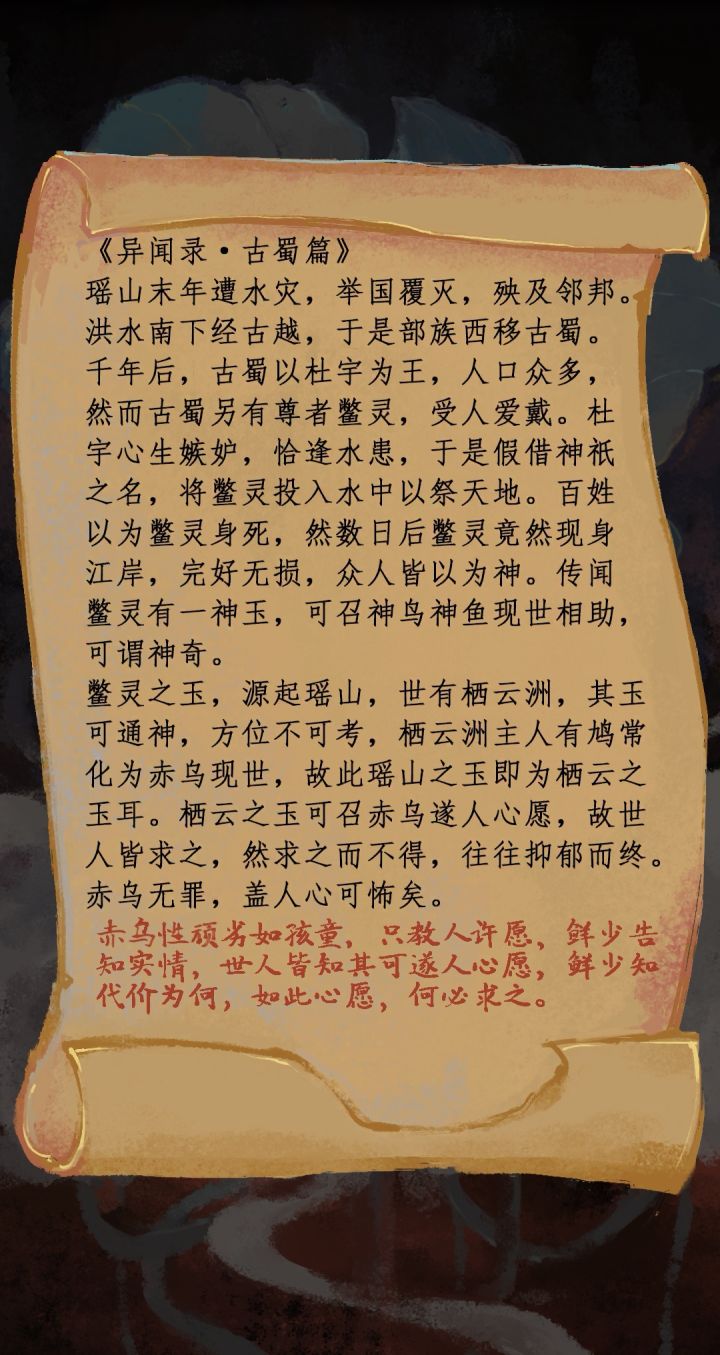 《异闻录·古蜀篇》
瑶山末年遭水灾，举国覆灭，殃及邻邦。
洪水南下经古越，于是部族西移古蜀。
千年后，古蜀以杜宇为王，人口众多，
然而古蜀另有尊者鳖灵，受人爱戴。杜
宇心生嫉妒，恰逢水患，于是假借神祇
之名，将鳖灵投入水中以祭天地。百姓
以为鳖灵身死，然数日后鳖灵竟然现身
江岸，完好无损，众人皆以为神。传闻
鳖灵有一神玉，可召神鸟神鱼现世相助，
可谓神奇。
鳖灵之玉，源起瑶山，世有栖云洲，其玉
可通神，方位不可考，栖云洲主人有鸠常
化为赤乌现世，故此瑶山之玉即为栖云之
玉耳。栖云之玉可召赤乌遂人心愿，故世
人皆求之，然求之而不得，往往抑郁而终。
赤乌无罪，盖人心可怖矣。
赤乌性顽劣如孩童，只教人许愿，鲜少告
知实情，世人皆知其可遂人心愿，鲜少知
代价为何，如此心愿，何必求之。